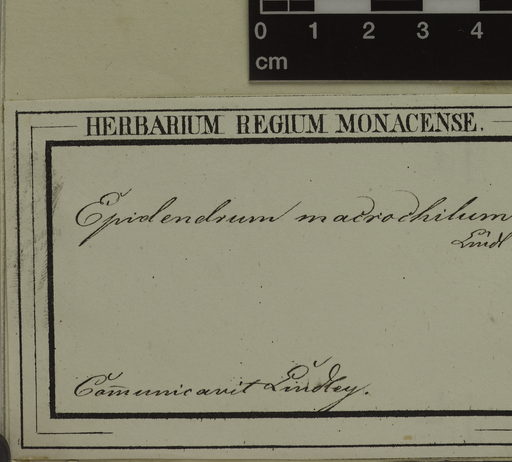 0 1 2 3 4
cm
HERBARIUM REGIUM MONACENSE.
Epidendrum macrochilum
Lindl
Com̄unicavit Lindley.